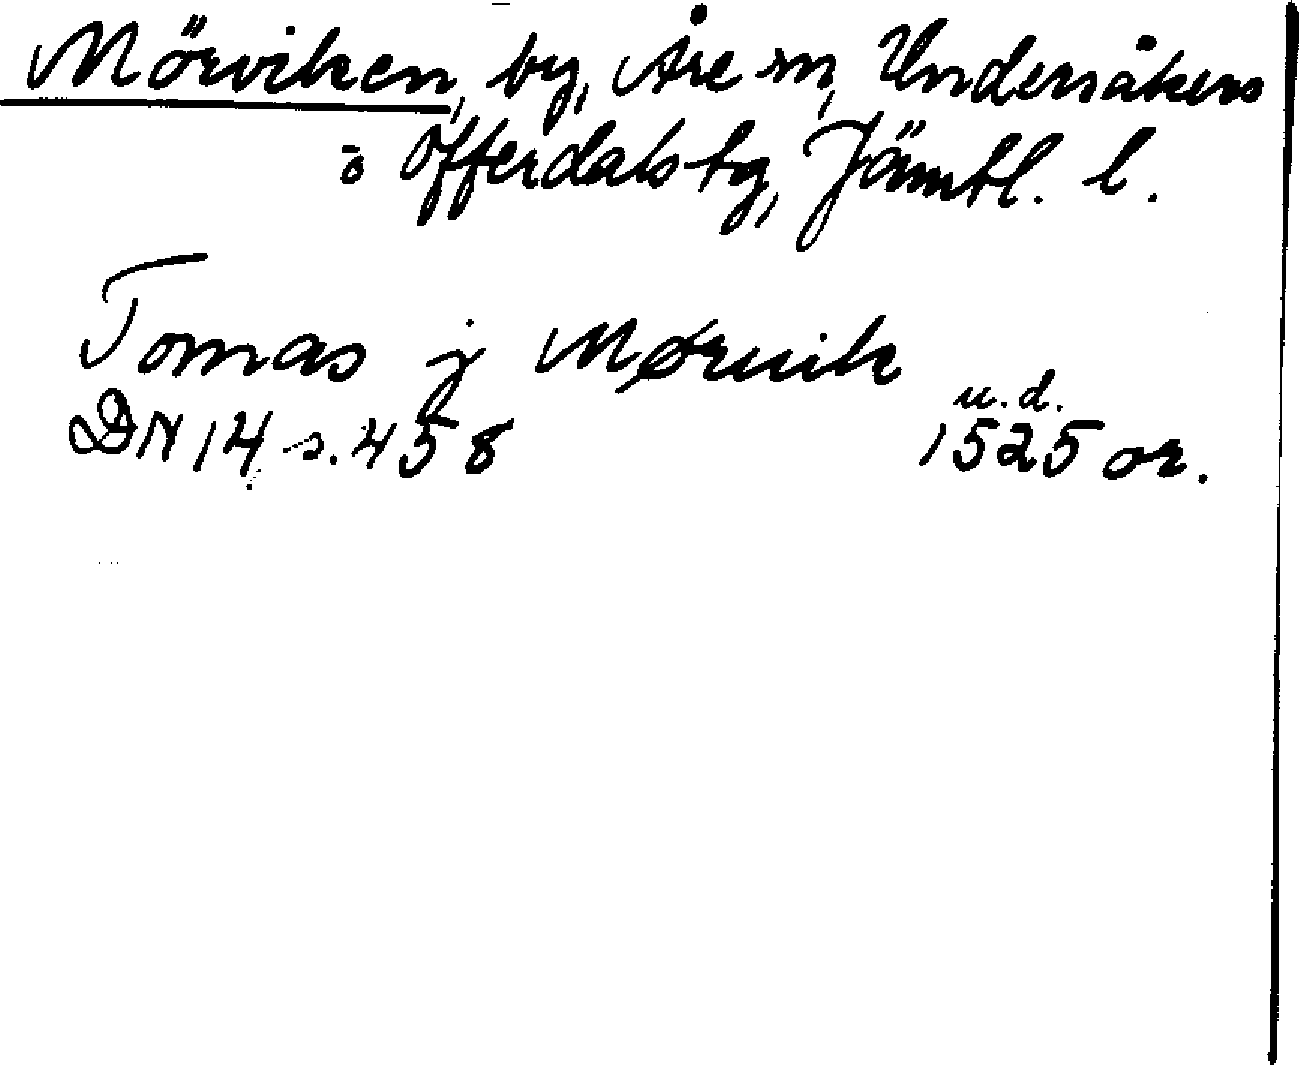 Mörviken, by, Åre sn, Undersåkers
o Offerdals tg, Jämtl. l.
Tomas j Møruik
u.d.
DN 14 s. 458 1525 or.